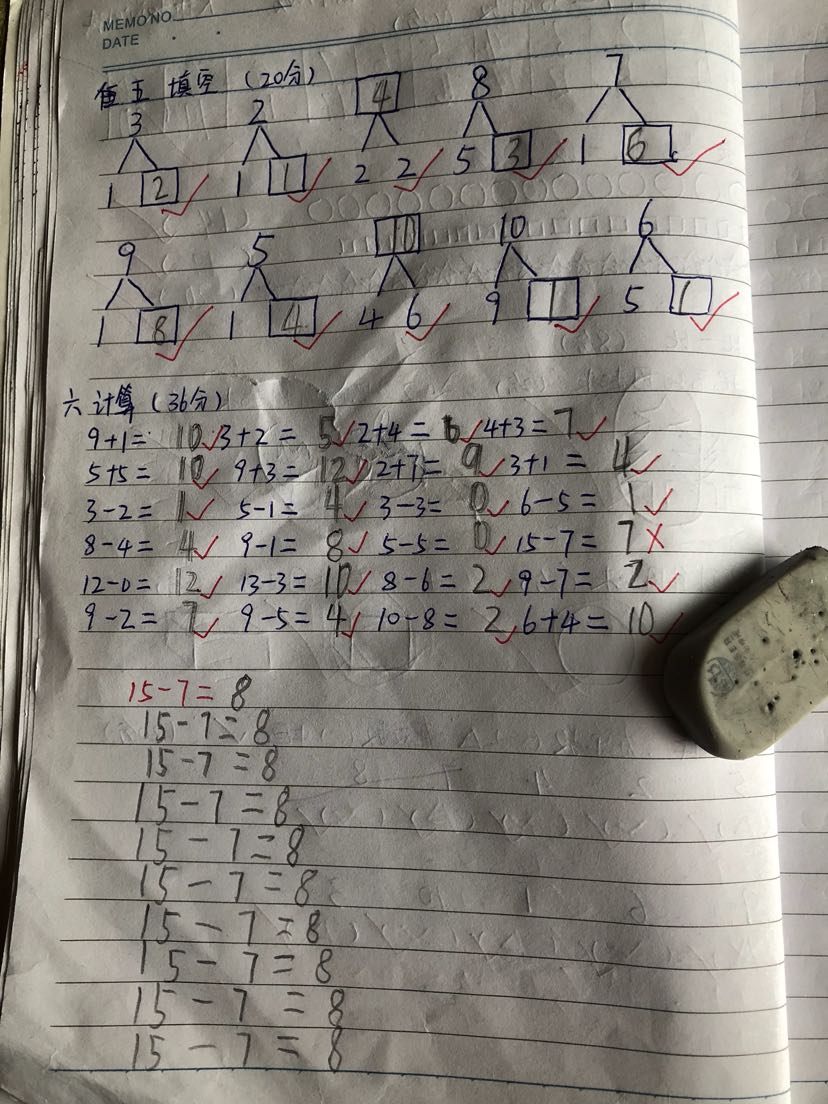 MEMO NO.
DATE
五 填空 (20分)
3 2 4 8 7
1 2 1 1 2 2 5 3 1 6
9 5 10 10 6
1 8 1 4 4 6 9 1 5 1
六 计算 (36分)
9+1= 10 3+2= 5 2+4= 6 4+3= 7
5+5= 10 9+3= 12 2+7= 9 3+1= 4
3-2= 1 5-1= 4 3-3= 0 6-5= 1
8-4= 4 9-1= 8 5-5= 0 15-7= 7
12-0= 12 13-3= 10 8-6= 2 9-7= 2
9-2= 7 9-5= 4 10-8= 2 6+4= 10
15-7= 8
15-7=8
15-7=8
15-7=8
15-7=8
15-7=8
15-7=8
15-7=8
15-7=8
15-7=8